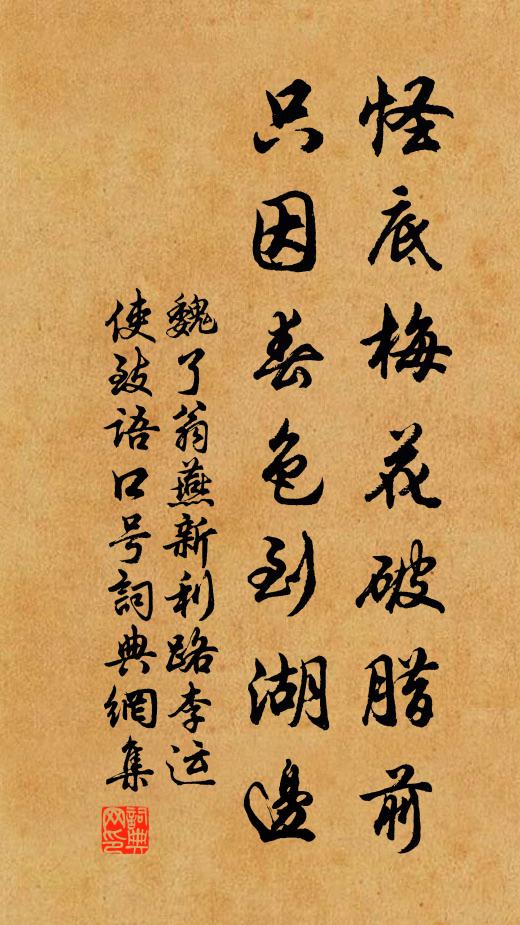 怪底梅花破腊前
只因春色到湖邊
魏了翁燕新利路李运
使致语口号詞典網集
詞典
网印